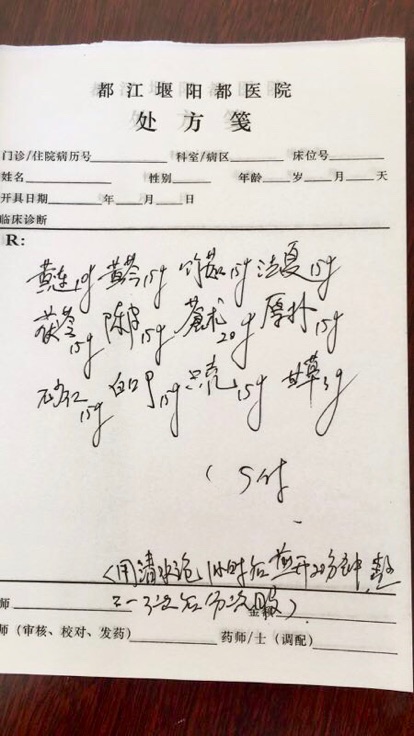 都江堰阳都医院
处方笺
门诊/住院病历号 科室/病区 床位号
姓名 性别 年龄 岁 月 天
开具日期 年 月 日
临床诊断
R:
黄连10g 黄芩15g 竹茹15g 法夏15g
茯苓15g 陈皮15g 苍术20g 厚朴15g
砂仁15g 白口15g 只壳15g 甘草3g
(5付
(用清水泡1小时后煎开20分钟,
后分次服)
师 金额
师(审核、校对、发药) 药师/士(调配)